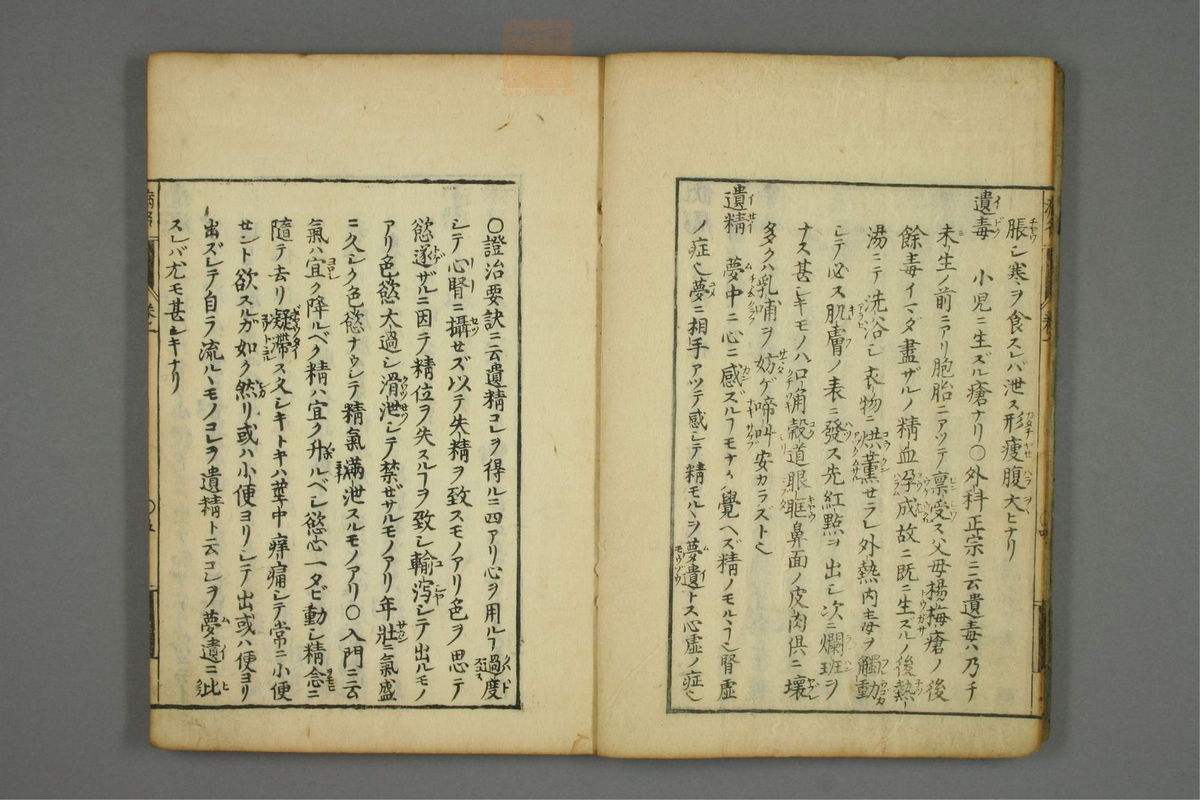 脹シ寒ヲ食スレバ泄ス形痩腹大ヒナリ
遺毒　小児ニ生ズル瘡ナリ〇外科正宗ニ云遺毒ハ乃チ
未生ノ前ニアリ胞胎ニアツテ禀受ス父母楊梅瘡ノ後
餘毒イマダ盡ザルノ精血孕成故ニ既ニ生ズルノ後熱
湯ニテ洗浴シ衣物ニ烘薫セラレ外熱内毒ヲ觸動
シテ必ス肌膚ノ表ニ發ス先紅點ヲ出シ次ニ爛斑ヲ
ナス甚シキモノハ口角穀道眼眶鼻面ノ皮肉倶ニ壊
タヾクハ乳哺ヲ妨ゲ啼叫安カラズト也
遺精　夢中ニ心ニ感ズルヿモナク覺ヘズ精ノモルヽヿシ腎虚
ノ症也夢ニ相手アツテ感シテ精モルヽヲ夢遺トス心虚ノ症也
〇證治要訣ニ云遺精コレヲ得ルニ四アリ心ヲ用ルヿ過度
シテ心腎ニ攝セズ以テ失精ヲ致スモノアリ色ヲ思テ
慾遂ザルニ因テ精位ヲ失スルヿヲ致シ輸瀉シテ出ルモノ
アリ色慾太過シ滑泄シテ禁ゼザルモノアリ年壯ニ氣盛
ニ久シク色慾ナウシテ精氣滿泄スルモノアリ〇入門ニ云
氣ハ宜ク降ルベク精ハ宜ク升ルベシ慾心一タビ動シ精念ニ
隨テ去リ疑滯ス久シキトキハ莖中痒痛シテ常ニ小便
セント欲スルガ如ク然リ或ハ小便ヨリシテ出或ハ便ヨリ
出ズシテ自ラ流ルヽモノコレヲ遺精ト云コレヲ夢遺ニ比
スレバ尤モ甚シキナリ